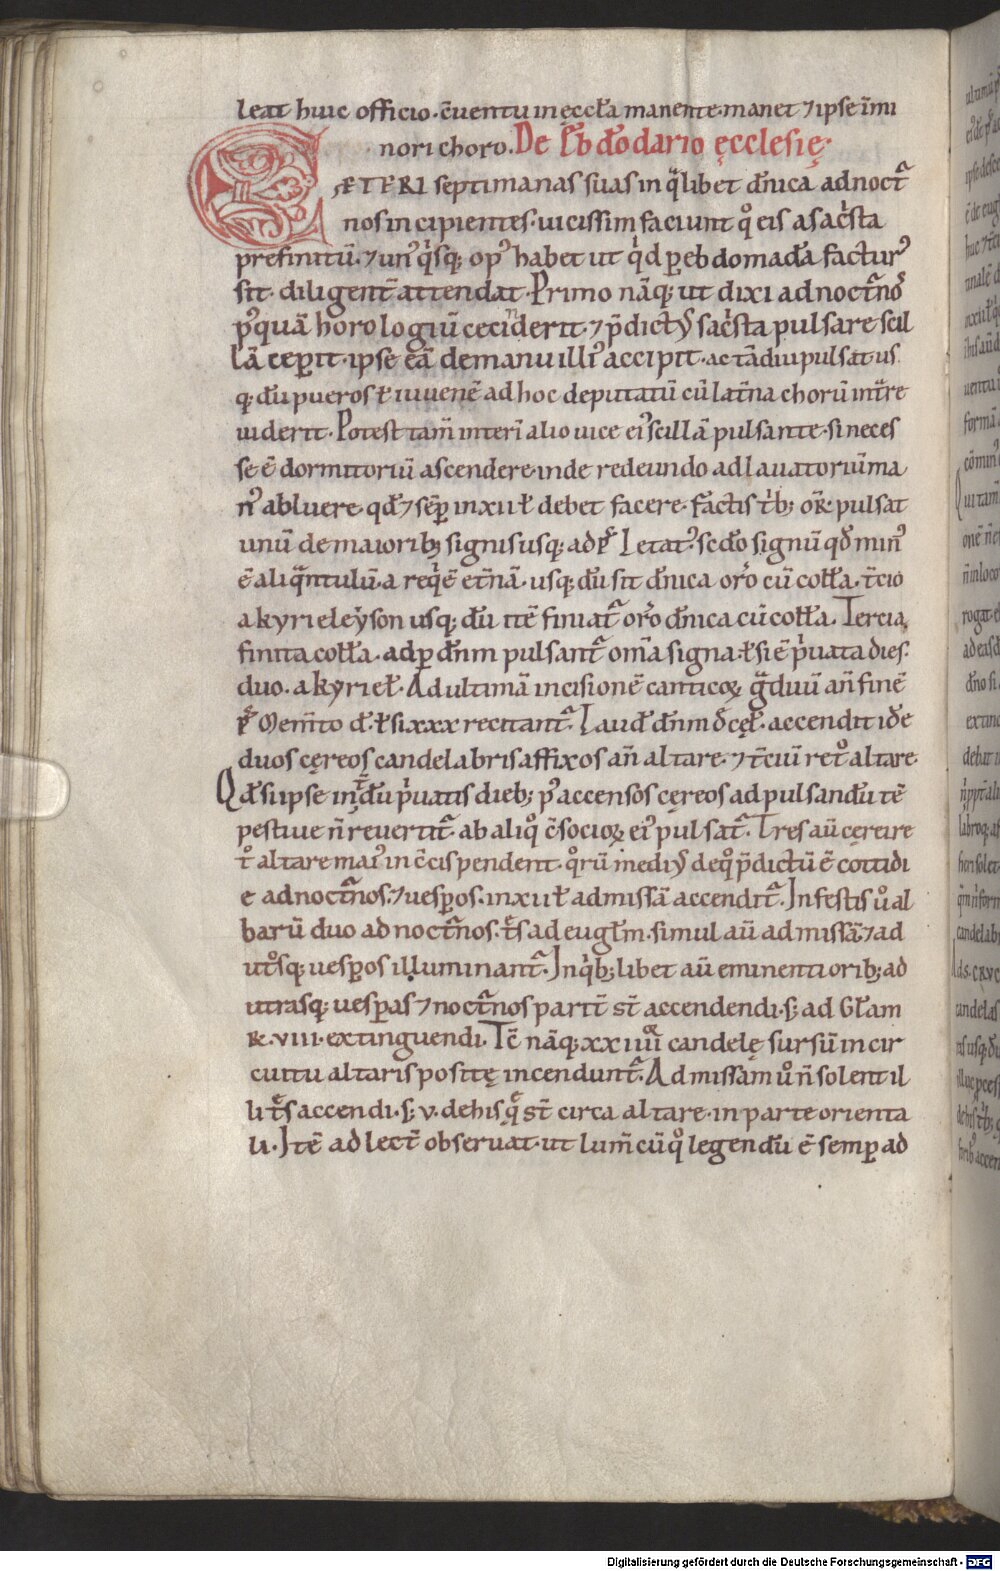 leat huic officio. c̄uentu in ęccl̄a manente. manet ⁊ ipse īmi
nori choro. De ebđodario ęcclesię.
CETERI septimanas suas in q̄libet dn̄ica ad noct̄
nos incipientes. uicissim faciunt qͦ eis a sac̍sta
prefinitū. ⁊ un᾽ q̍sq; op᾽ habet ut q̍d ꝑ ebdomadā factur᾽
sit. diligent̄ attendat. Primo nāq; ut dixi ad noct̄nos
p᾽quā horologiū ceciderit. ⁊ p̄dict᾽ sac̍sta pulsare scil
lā ceꝑit. ipse eā de manu illi᾽ accipit. ac tādiu pulsat us
q; dū pueros ł iuuenē ad hoc deputatū cū lat̄na chorū int̄re
uiderit. Potest tam̄ interī alio uice ei᾽ scillā pulsante. si neces
se ē dormitoriū ascendere. inde redeundo ad lauatoriū ma
n᾽ abluere. qđ ⁊ sēꝑ in xii ł debet facere. Factis t̍b; or̄. pulsat
unū de maiorib; signis usq; ad ps̄ Letat᾽. secđo signū qđ min᾽
ē aliq̄ntulū. a req̍ē et̄nā. usq; dū sit dn̄ica orō cū coll̄a. t̄cio
a kyrieleyson usq; dū itē finiat̄ orō dn̄ica cū coll̄a. Tercia
finita coll̄a. ad ꝑ dn̄m pulsant̄ om̄a signa. ł si ē p̍uata dies.
duo. a kyriel̄. Ad ultimā incisionē canticoꝝ ḡduū an̄ finē
ps̄ Mem̄to đ. ł si xxx recitant̄. Lauđ dn̄m đ cęł. accendit iđe
duos cęreos candelabris affixos an̄ altare. ⁊ t̄ciū ret͛ altare.
Qđ si ipse int̄dū p̍uatis dieb; p᾽ accensos cęreos ad pulsandū tē
pestiue n̄ reuertit̄. ab aliqͦ c̄socioꝝ ei᾽ pulsat̄. Tres aū cęrei re
t͛ altare mai᾽ in c̄cis pendent. qͦrū medi᾽ de qͦ p̄dictū ē cottidi
e ad noct̄nos. ⁊ uesꝑos. in xii ł ad missā accendit̄. In festis uͦ al
barū duo ad noct̄nos. t̄s ad eugl̄m. simul aū ad missā. ⁊ ad
ut͛sq; uesꝑos illuminant̄. In q̍b;libet aū eminentiorib; ad
utrasq; uesꝑas ⁊ noct̄nos part̄ st̄ accendendi. s; ad Gl̄am
R. viii. extinguendi. Tc̄ nāq; xxiiii candelę sursū in cir
cuitu altaris positę incendunt̄. Ad missam uͦ n̄ solent il
li t̄s accendi. s; v. de his q̄ st̄ circa altare. in parte orienta
li. Itē ad lect̄ obseruat. ut lum̄ cū qͦ legendū ē semꝑ ad
Digitalisierung gefördert durch die Deutsche Forschungsgemeinschaft - DFG